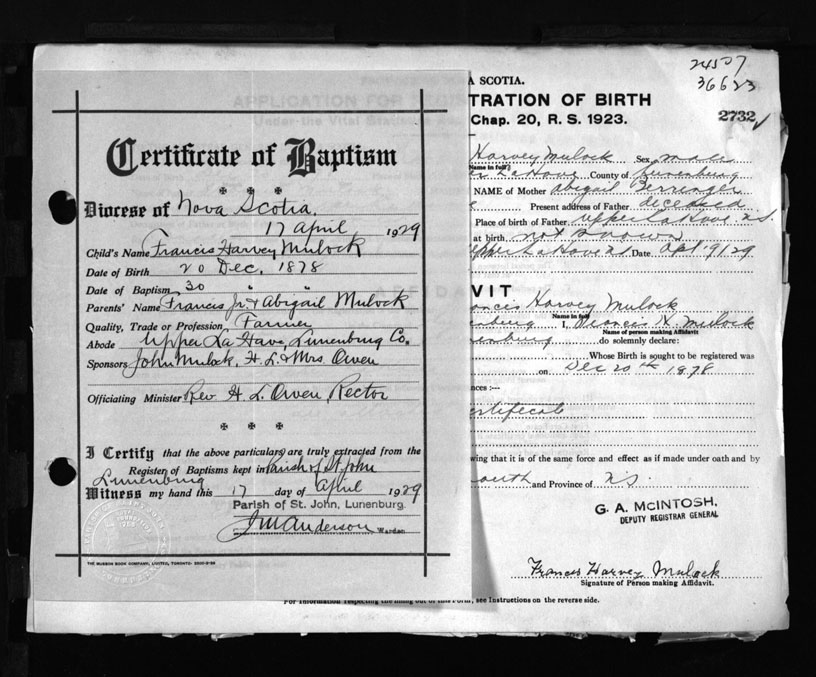 Certificate of Baptism
Diocese of Nova Scotia.
17 April 1929
Child's Name Francis Harvey Mulock
Date of Birth 20 Dec, 1878
Date of Baptism 30 " "
Parents' Name Francis Jr & Abigail Mulock
Quality, Trade or Profession Farmer
Abode Upper La Have, Lunenburg Co.
Sponsors John Mulock, H. L. & Mrs. Owen
Officiating Minister Rev. H. L. Owen, Rector
I Certify that the above particulars are truly extracted from the
Register of Baptisms kept in Parish of St John
Lunenburg
Witness my hand this 17 day of April 1929
Parish of St. John, Lunenburg.
J M Anderson Warden
THE MUSSON BOOK COMPANY, LIMITED, TORONTO
24507
36623
A SCOTIA.
TRATION OF BIRTH
Chap. 20, R. S. 1923.
2732
Harvey Mulock Sex male
Name in full
La Have County of Lunenburg
NAME of Mother Abigail
Present address of Father deceased
Place of birth of Father Upper La Have N.S.
at birth not known
Upper La Have N.S. Date Apl. 9/29
VIT
Francis Harvey Mulock
Name in full
I, Francis H. Mulock
Name of person making Affidavit
do solemnly declare:
Whose Birth is sought to be registered was
on Dec 20th 1878
nces :—
ertificate
wing that it is of the same force and effect as if made under oath and by
outh and Province of N.S.
G. A. McINTOSH,
DEPUTY REGISTRAR GENERAL
Francis Harvey Mulock
Signature of Person making Affidavit.
For Information respecting the filling out of this Form, see Instructions on the reverse side.